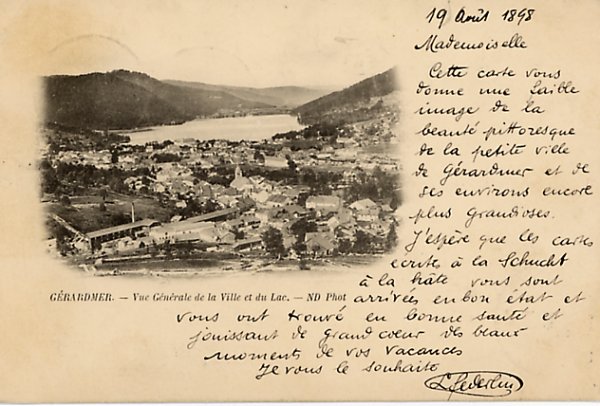 19 Août 1898
Mademoiselle
Cette carte vous
donne une faible
image de la
beauté pittoresque
de la petite ville
de Gérardmer et de
ses environs encore
plus grandioses.
J'espère que les cartes
écrites à la Schucht
à la hâte vous sont
arrivées en bon état et
vous ont trouvé en bonne santé et
jouissant de grand coeur des beaux
moments de vos vacances
Je vous le souhaite
GÉRARDMER. — Vue Générale de la Ville et du Lac. — ND Phot
L. Federlin